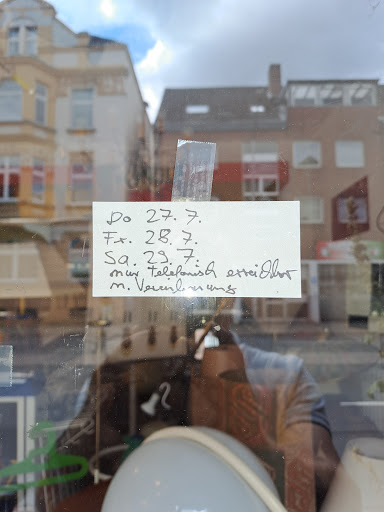 Do 27. 7.
Fr. 28. 7.
Sa. 29. 7.
nur telefonisch erreichbar
n. Vereinbarung